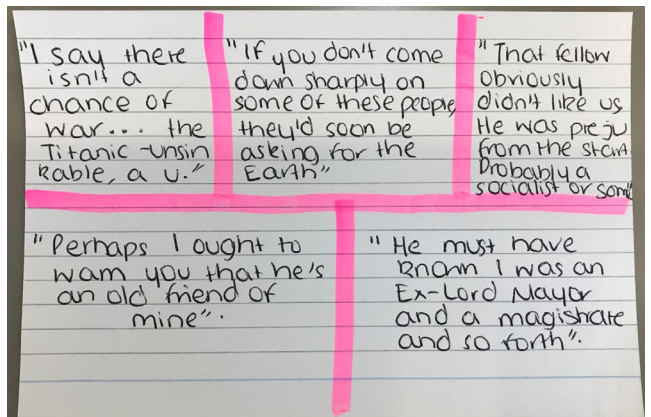 "I say there
isn't a
chance of
war... the
Titanic - unsin
kable, a u."
"If you don't come
down sharply on
some of these people,
they'd soon be
asking for the
Earth"
"That fellow
obviously
didn't like us,
He was preju
from the start
Probably a
socialist or some
"Perhaps I ought to
warn you that he's
an old friend of
mine".
"He must have
known I was an
Ex-Lord Mayor
and a magistrate
and so forth".